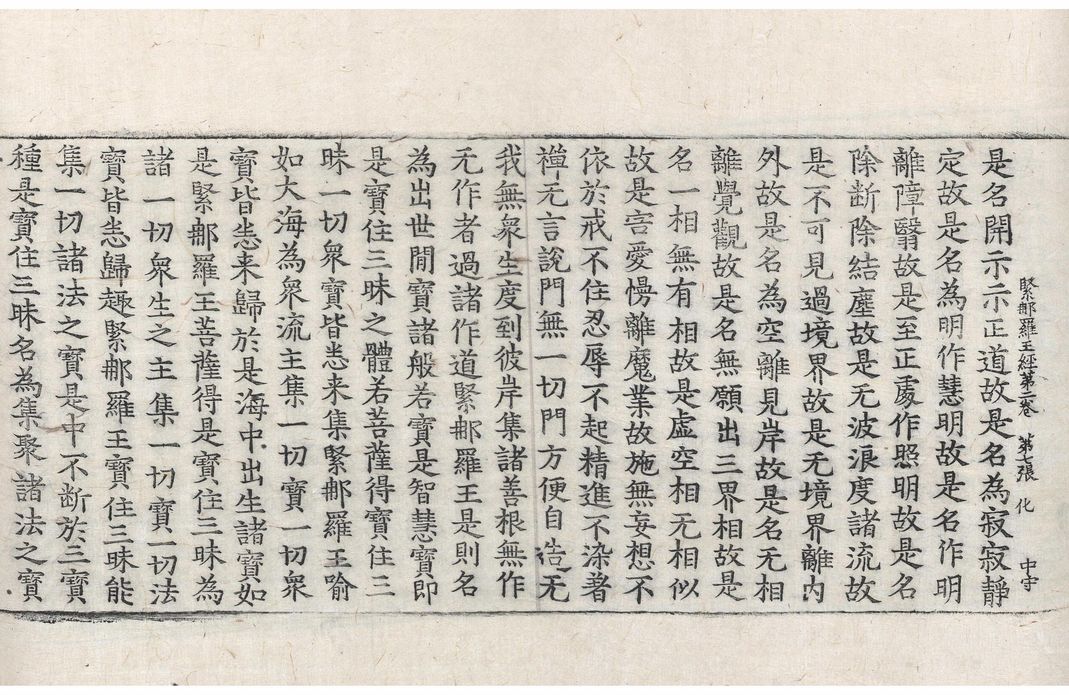 緊郍羅王經第二卷 第七張 化 中宇
是名開示示正道故是名為寂寂靜
定故是名為明作慧明故是名作明
離障翳故是至正處作照明故是名
除断除結塵故是无波浪度諸流故
是不可見過境界故是无境界離内
外故是名為空離見岸故是名无相
離覺觀故是名無願出三界相故是
名一相無有相故是虛空相无相似
故是害愛慢離魔業故施無妄想不
依於戒不住忍辱不起精進不染著
禪无言說門無一切門方便自造无
我無衆生度到彼岸集諸善根無作
无作者過諸作道緊郍羅王是則名
為出世閒寶諸般若寶是智慧寶即
是寶住三昧之體若菩薩得寶住三
昧一切衆寶皆悉来集緊郍羅王喻
如大海為衆流主集一切寶一切衆
寶皆悉来歸於是海中出生諸寶如
是緊郍羅王菩薩得是寶住三昧為
諸一切衆生之主集一切寶一切法
寶皆悉歸趣緊郍羅王寶住三昧能
集一切諸法之寶是中不断於三寶
種是寶住三昧名為集聚諸法之寶